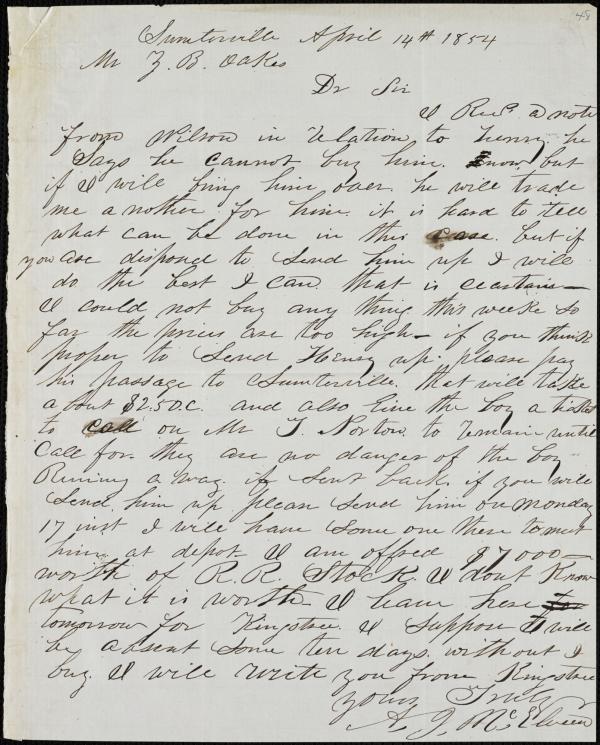 48
Sumterville April 14th 1854
Mr Z. B. Oakes
Dr Sir
I Recd. a note
from Wilson in relation to henry. he
Says he cannot buy him. now but
if I will bring him over. he will trade
me another for him. it is hard to tell
what can be done in this case. but if
you are disposd to Send him up I will
do the best I can that is ceartain —
I could not buy any thing this weeke So
far the prices are too high — if you think
proper to Send Henry up. please pay
his passage to Sumterville. that will take
about $2.50.c. and also Give the boy a ticket
to call on Mr J. Norton to remain until
Call for. they are no danger of the boy
Runing a way. if Sent back. if you will
Send him up please Send him on monday
17 inst I will have Some one there to meet
him at depot I am offred $7000 —
worth of R. R. Stock. I dont Know
what it is worth I leave here
tomorrow for Kingstree. I Suppose I will
be absent Some ten days. without I
buy. I will write you from Kingstree
yours Truly
A. J. McElveen